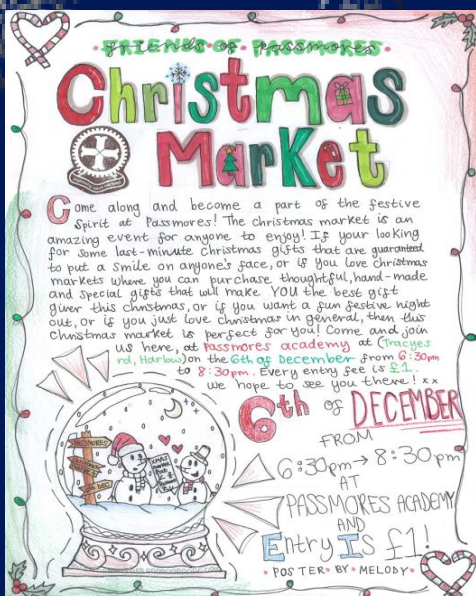 Friends of Passmores
Christmas
Market
Come along and become a part of the festive
Spirit at Passmores! The christmas market is an
amazing event for anyone to enjoy! If your looking
for some last-minute christmas gifts that are guaranteed
to put a smile on anyone's face, or if you love christmas
markets where you can purchase thoughtful, hand-made
and special gifts that will make YOU the best gift
giver this christmas, or if you want a fun festive night
out, or if you just love christmas in general, then this
christmas market is perfect for you! Come and join
us here, at Passmores academy at (Tracyes
rd, Harlow) on the 6th of December from 6:30pm
to 8:30pm. Every entry fee is £1.
we hope to see you there! xx
6th of DECEMBER
FROM
6:30pm → 8:30pm
AT
PASSMORES ACADEMY
AND
Entry Is £1!
• POSTER • BY • MELODY •
PASSMORES